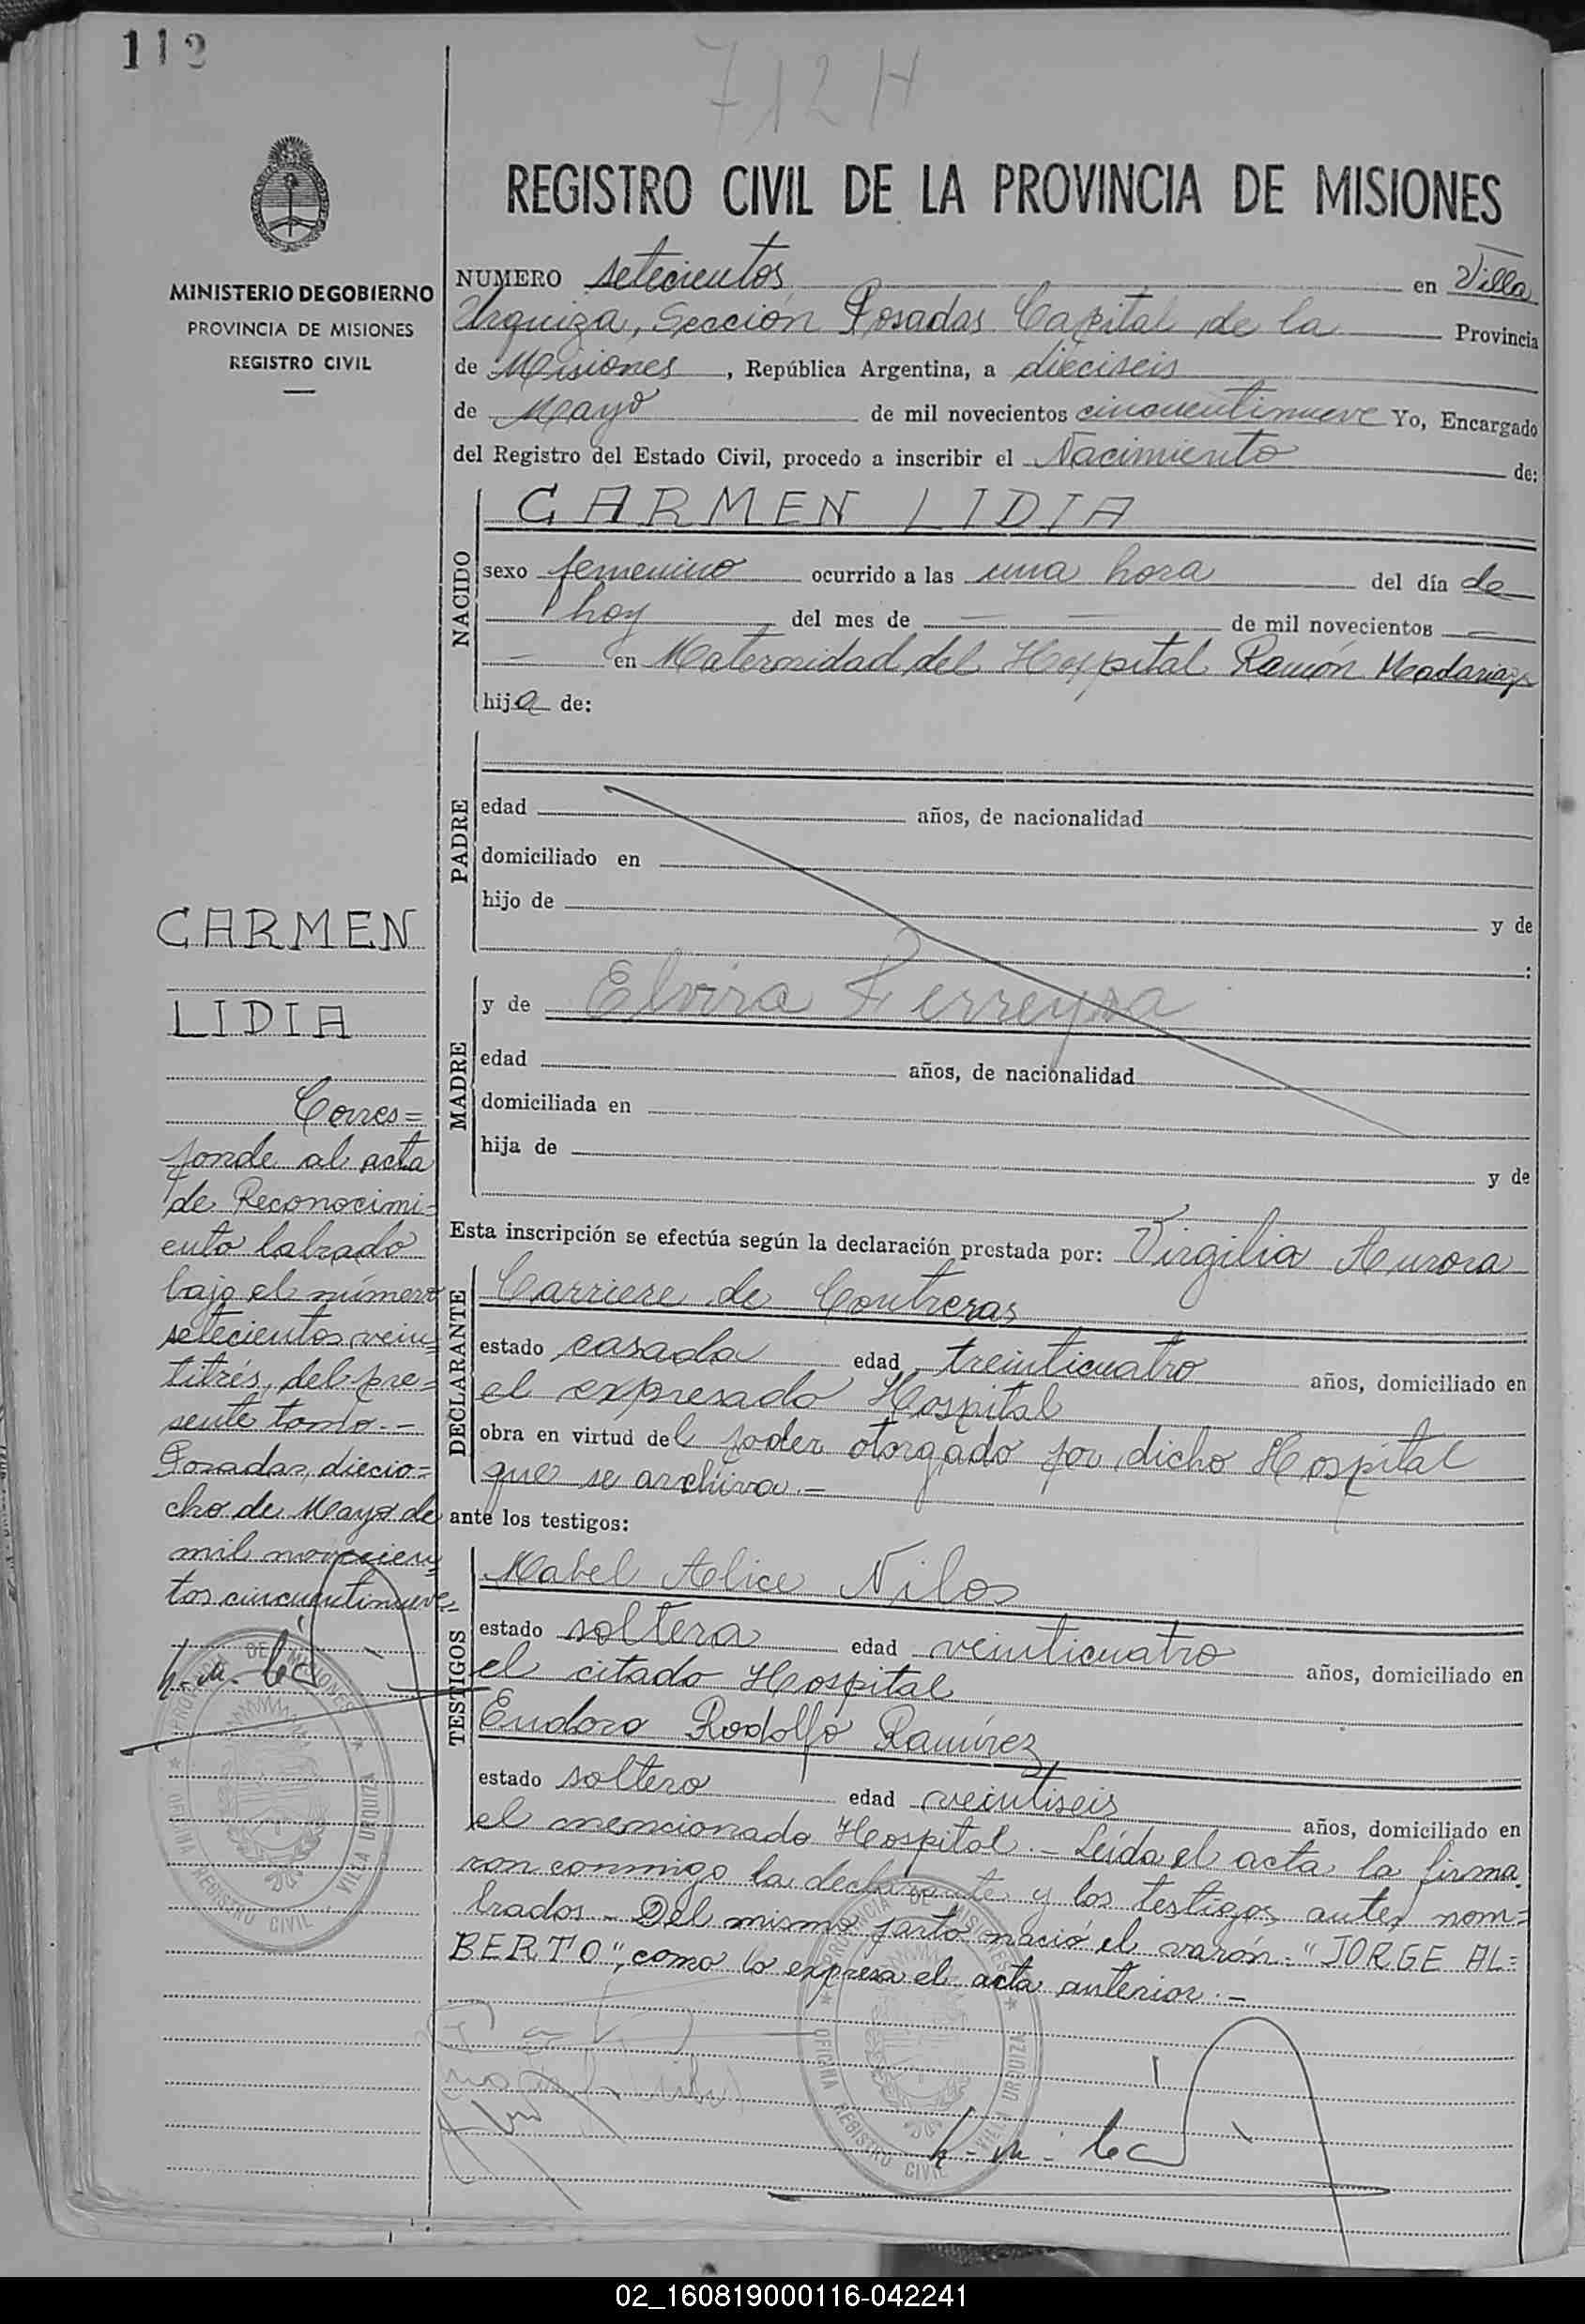 112
712 H
REGISTRO CIVIL DE LA PROVINCIA DE MISIONES
MINISTERIO DE GOBIERNO
PROVINCIA DE MISIONES
REGISTRO CIVIL
NUMERO setecientos en Villa
Urquiza, Sección Posadas Capital de la Provincia
de Misiones, República Argentina, a dieciseis
de Mayo de mil novecientos cincuentinueve Yo, Encargado
del Registro del Estado Civil, procedo a inscribir el Nacimiento de:
NACIDO
CARMEN LIDIA
sexo femenino ocurrido a las una hora del día de
hoy del mes de — — de mil novecientos —
— en Maternidad del Hospital Ramón Madariaga
hija de:
PADRE
edad años, de nacionalidad
domiciliado en
hijo de y de
:
MADRE
y de Elvira Ferreyra
edad años, de nacionalidad
domiciliada en
hija de y de
Esta inscripción se efectúa según la declaración prestada por: Virgilia Aurora
DECLARANTE
Carriere de Contreras
estado casada edad treinticuatro años, domiciliado en
el expresado Hospital
obra en virtud del poder otorgado por dicho Hospital
que se archiva.-
ante los testigos:
TESTIGOS
Mabel Alice Nilos
estado soltera edad veinticuatro años, domiciliado en
el citado Hospital
Eudoro Rodolfo Ramírez
estado soltero edad veintiseis años, domiciliado en
el mencionado Hospital.- Leída el acta la firma
ron conmigo la declarante y los testigos antes nom=
brados.- Del mismo parto nació el varón: "JORGE AL=
BERTO", como lo expresa el acta anterior.-
CARMEN
LIDIA
Corres=
ponde al acta
de Reconocimi=
ento labrado
bajo el número
setecientos vein=
titrés, del pre=
sente tomo.-
Posadas, diecio=
cho de Mayo de
mil novecien=
tos cincuentinueve.-
PROVINCIA DE MISIONES
OFICINA REGISTRO CIVIL VILLA URQUIZA
PROVINCIA DE MISIONES
OFICINA REGISTRO CIVIL VILLA URQUIZA
02_160819000116-042241